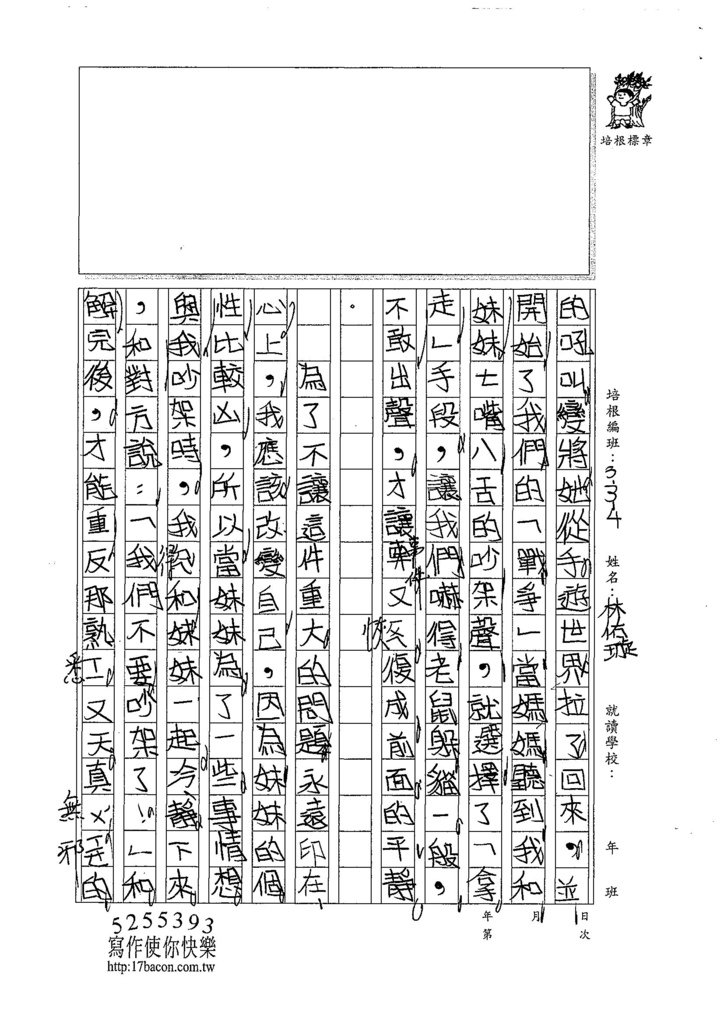 培根標章
培根編班：334 姓名：林佑璇 就讀學校： 年 班
年 月 日
第 次
的吼叫變將她從手遊世界拉了回來，並
開始了我們的「戰爭」當媽媽聽到我和
妹妹七嘴八舌的吵架聲，就選擇了「拿
走」手段，讓我們嚇得老鼠躲貓一般，
不敢出聲，才讓事件又恢復成前面的平靜
。
為了不讓這件重大的問題永遠印在
心上，我應該改變自己，因為妹妹的個
性比較凶，所以當妹妹為了一些事情想
與我吵架時，我很和妹妹一起冷靜下來
，和對方說：「我們不要吵架了！」和
解完後，才能重反那熟悉又天真無邪的
5255393
寫作使你快樂
http:17bacon.com.tw